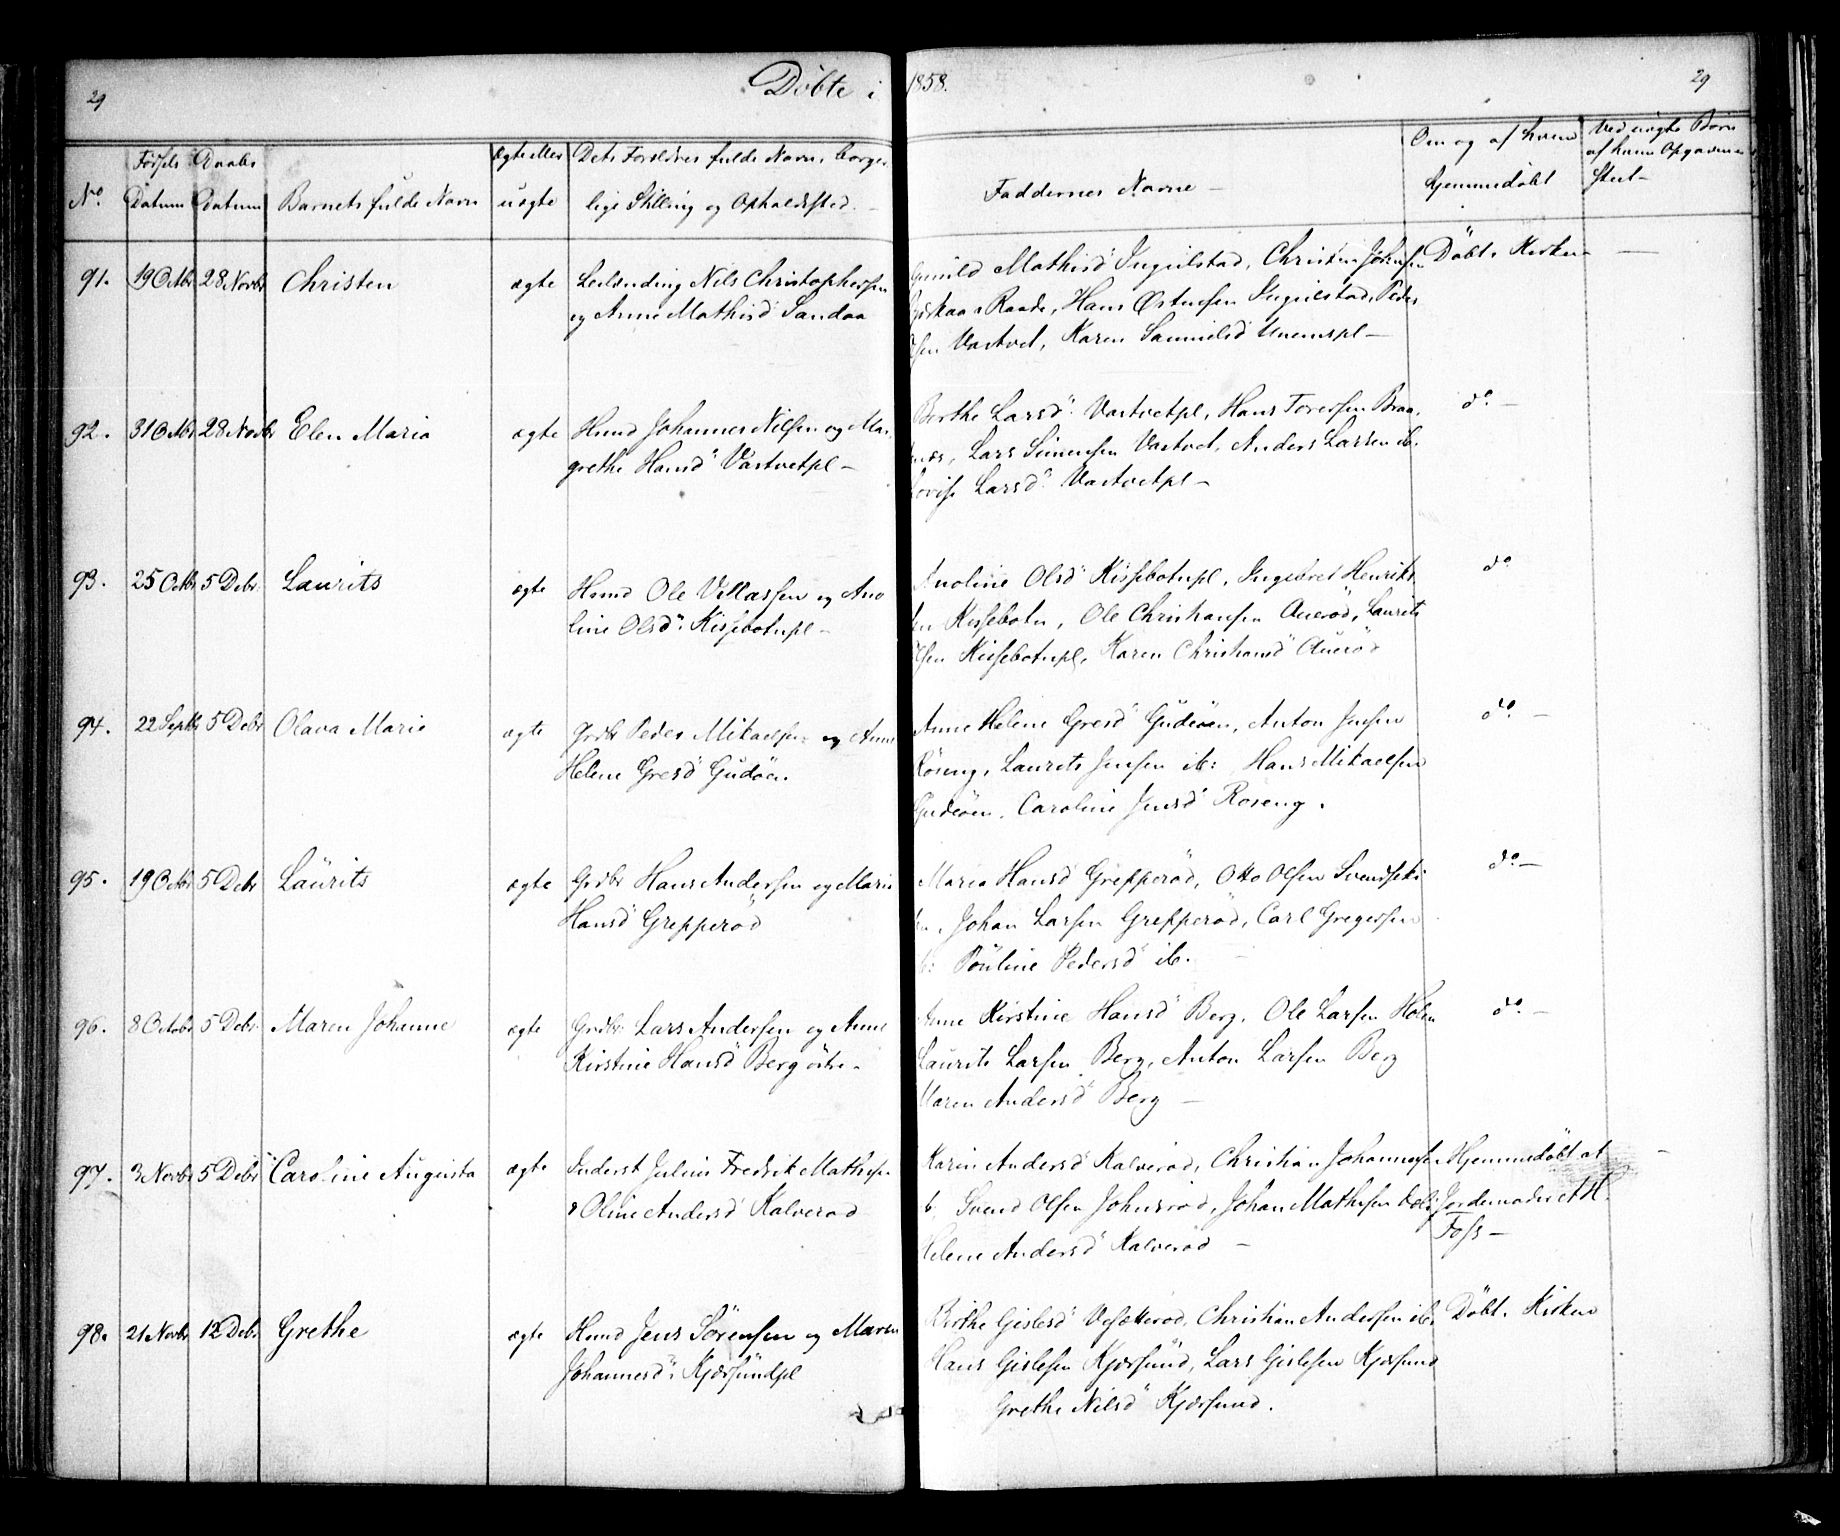 29 Döbte i 1858. 29
No. Födsels Datum Daabs Datum Barnets fulde Navn Ægte eller uægte Dets Forældres fulde Navn, borgerlige Stilling og Opholdssted. Faddernes Navne – Om og af hvem hjemmedöbt Ved uægte Börn af hvem Opgaven er skeet –
91. 19 Octbr 28 Novbr Christen ægte Leilænding Nils Christophersen
og Anne Mathisd Sandaa
Gunild Mathisd Ingulstad, Christen Johnsen Döbt i Kirken –
Raade, Hans Östensen Ingulstad, Peder
Vastvet, Karen Samuelsd Unemspl –
92. 31 Octbr 28 Novbr Elen Maria ægte Hmnd Johannes Nilsen og Mar-
grethe Hansd Vastvetpl –
Berthe Larsd Vastvetpl, Hans Toresen Braa-
næs, Lars Simensen Vastvet, Anders Larsen ib.
Lovise Larsd Vastvetpl –
do –
93. 25 Octbr 5 Debr Laurits ægte Hmnd Ole Villassen og Ano
line Olsd Kissebotnpl –
Anoline Olsd Kissebotnpl, Ingebret Henrik
sen Kissebotn, Ole Christiansen Aueröd, Laurits
Olsen Kissebotnpl, Karen Christiansd Aueröd
do
94. 22 Septbr 5 Debr Olava Marie ægte Grdbr Peder Mikaelsen og Anne
Helene Gresd Gudöen.
Anne Helene Gresd Gudeöen, Anton Jensen
Röseng, Laurits Jensen ib: Hans Mikaelsen
Gudeöen. Caroline Jensd Roseng.
do –
95. 19 Octbr 5 Debr Laurits ægte Grdbr Hans Andersen og Maria
Hansd Grepperöd
Maria Hansd Grepperöd, Otto Olsen
Johan Larsen Grepperöd, Carl Gregersen
ib: Pauline Pedersd ib. –
do –
96. 8 Octobr 5 Debr Maren Johanne ægte Grdbr Lars Andersen og Anne
Kirstine Hansd Berg östre –
Anne Kirstine Hansd Berg, Ole Larsen Holen
Laurits Larsen Berg, Anton Larsen Berg
Maren Andersd Berg –
do –
97. 3 Novbr 5 Debr Caroline Augusta ægte Inderst Julius Fredrik Mathisen
& Oline Andersd Kalveröd
Karin Andersd Kalveröd, Christian Johannesen Hjemmedöbt af –
ib. Svend Olsen Johnsröd, Johan Mathisen Jordemoder
Helene Andersd Kalveröd – Foss –
98. 21 Novbr 12 Debr Grethe ægte Hmnd Jens Sörensen og Maren
Johannesd Kjærsundpl
Berthe Gislesd Christian Andersen ib. Döbt i Kirken
Hans Gislesen Kjærsund, Lars Gislesen Kjærsund
Grethe Nilsd Kjærsund.